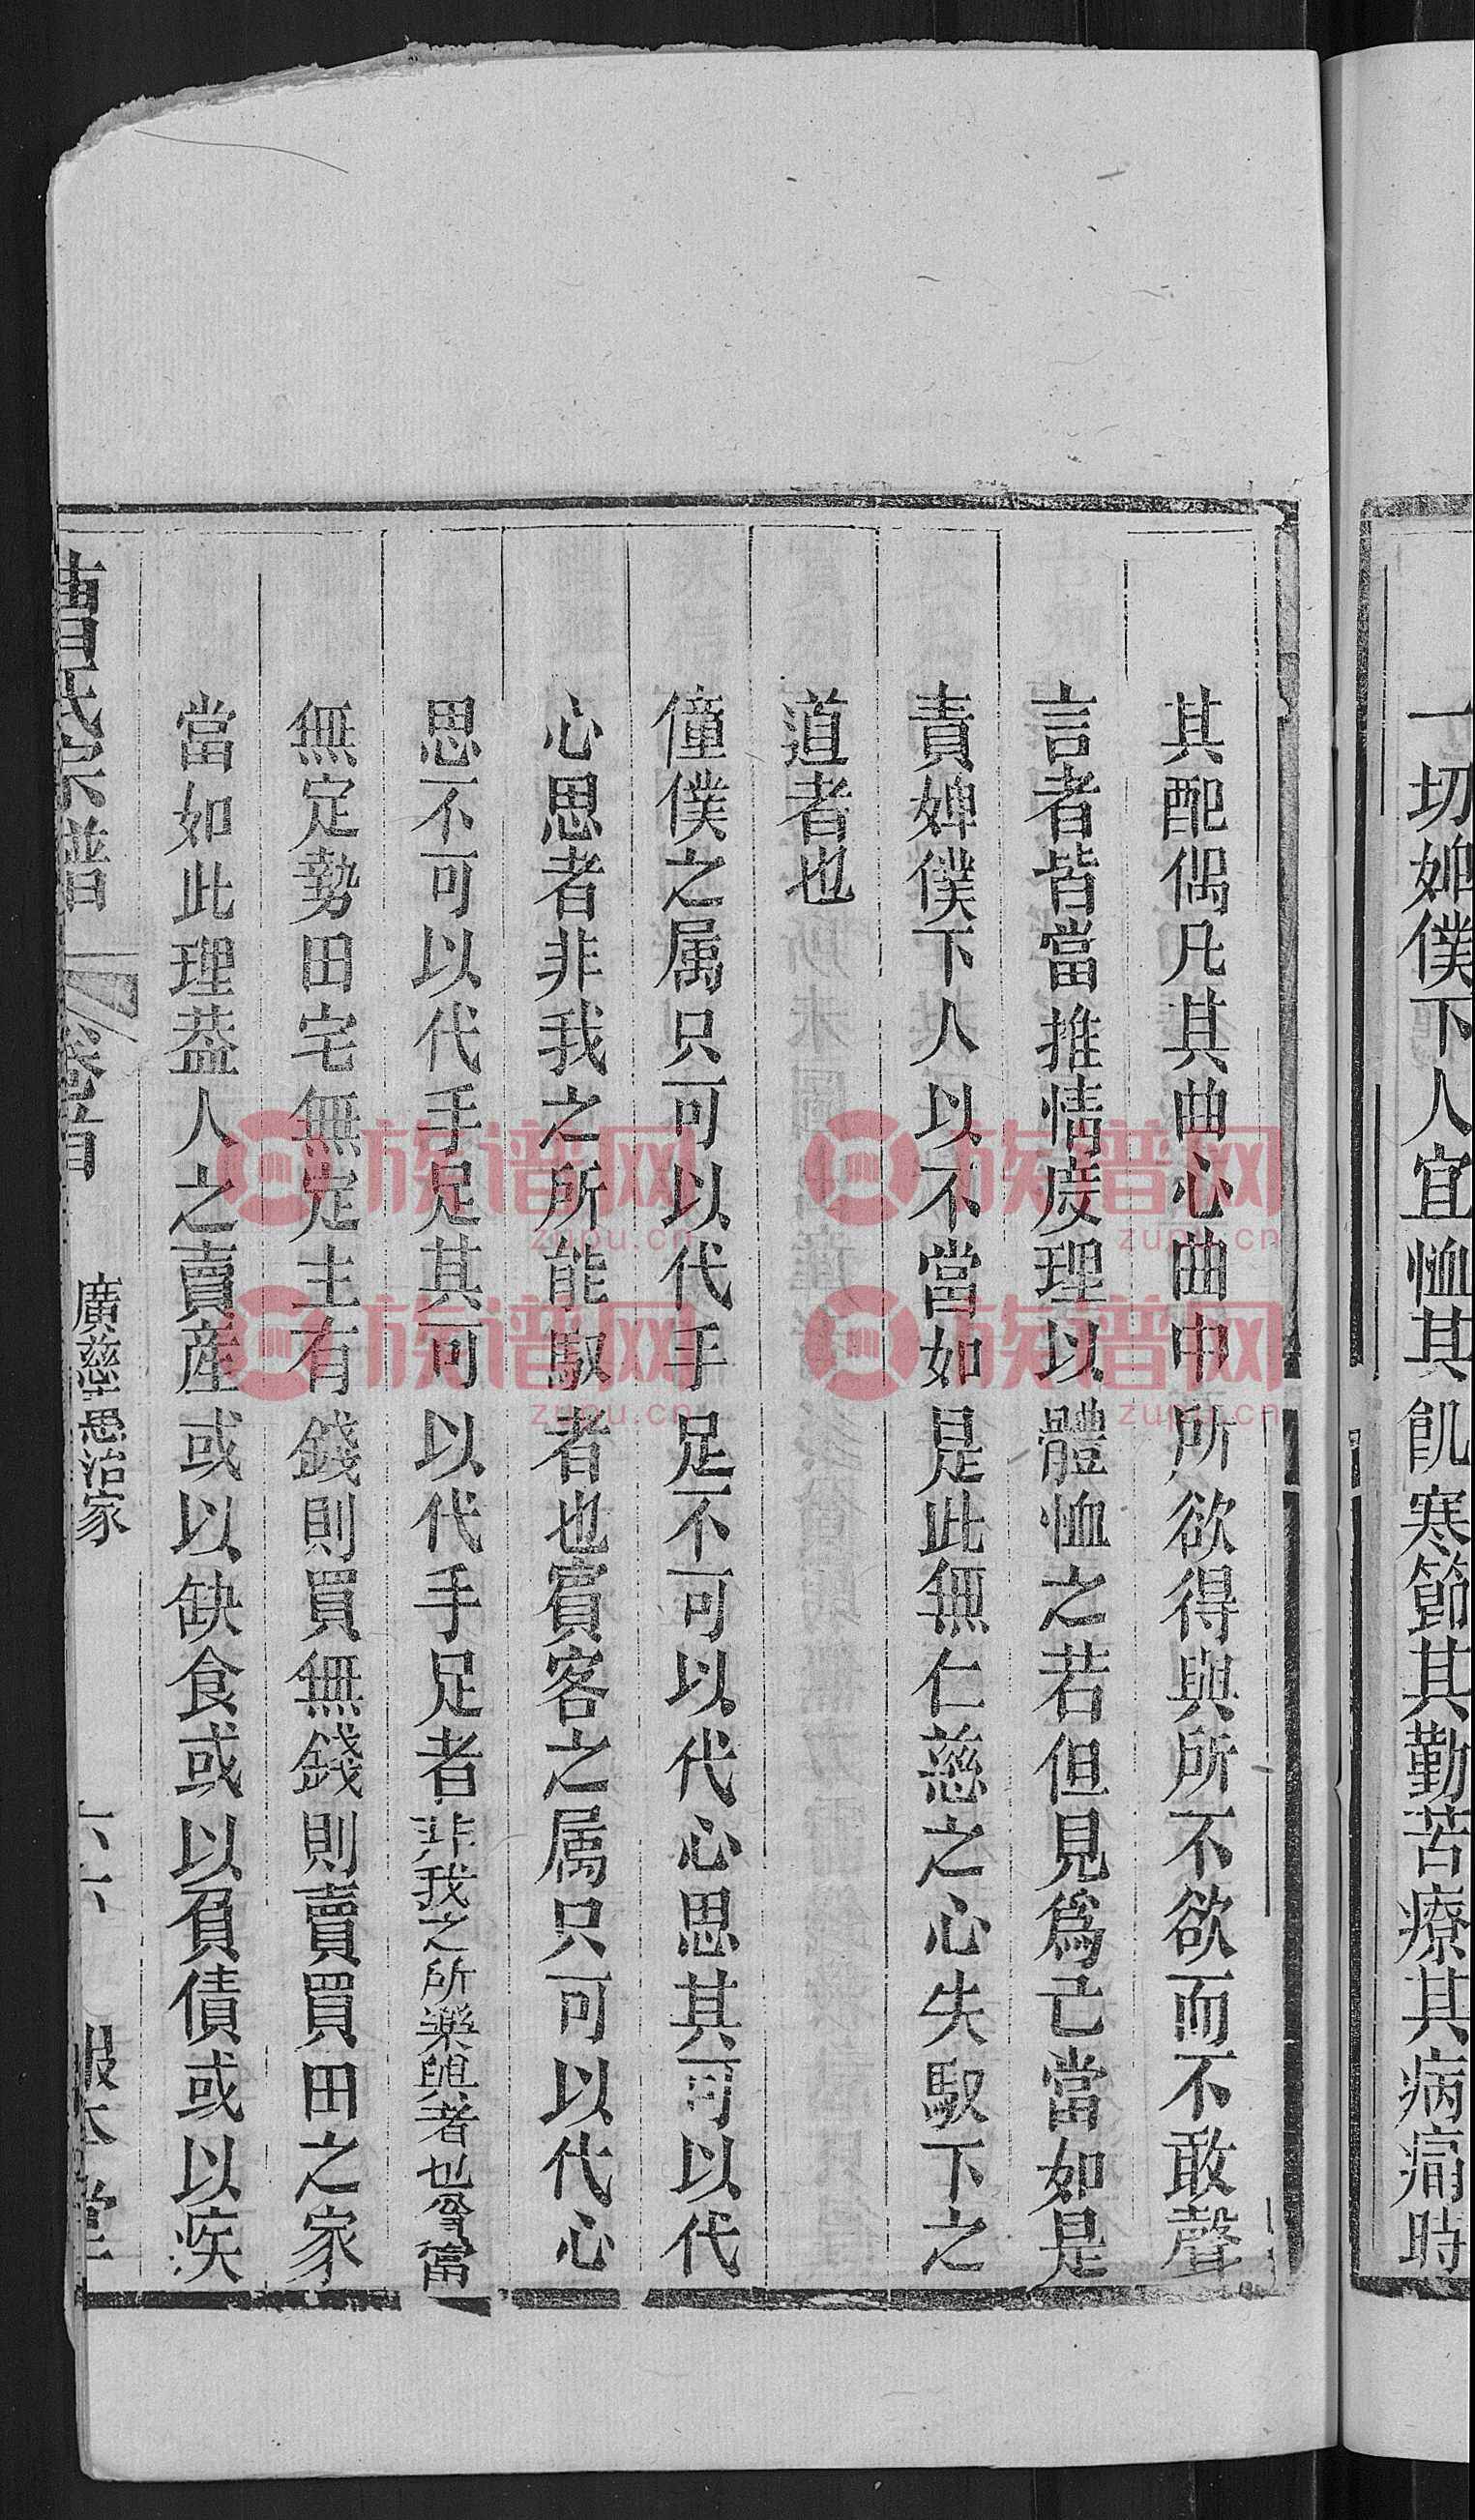 一切婢僕下人宜恤其飢寒節其勤苦療其病痛時
其配偶凡其曲心曲中所欲得與所不欲而不敢聲
言者皆當推情度理以體恤之若但見爲己當如是
責婢僕下人以不當如是此無仁慈之心失馭下之
道者也
僮僕之属只可以代手足不可以代心思其可以代
心思者非我之所能馭者也賓客之属只可以代心
思不可以代手足其可以代手足者非我之所藥與者也貧富
無定勢田宅無定主有錢則買無錢則賣買田之家
當如此理葢人之賣産或以缺食或以負債或以疾
曹氏宗譜 卷首 廣慈惠治家 六六 報本堂
族谱网
zupu.cn
族谱网
zupu.cn
族谱网
zupu.cn
族谱网
zupu.cn